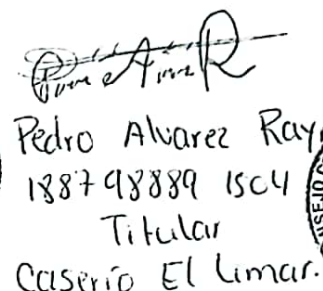 Pedro Alvarez Ray
188798889 1504
Titular
Caserío El Limar.